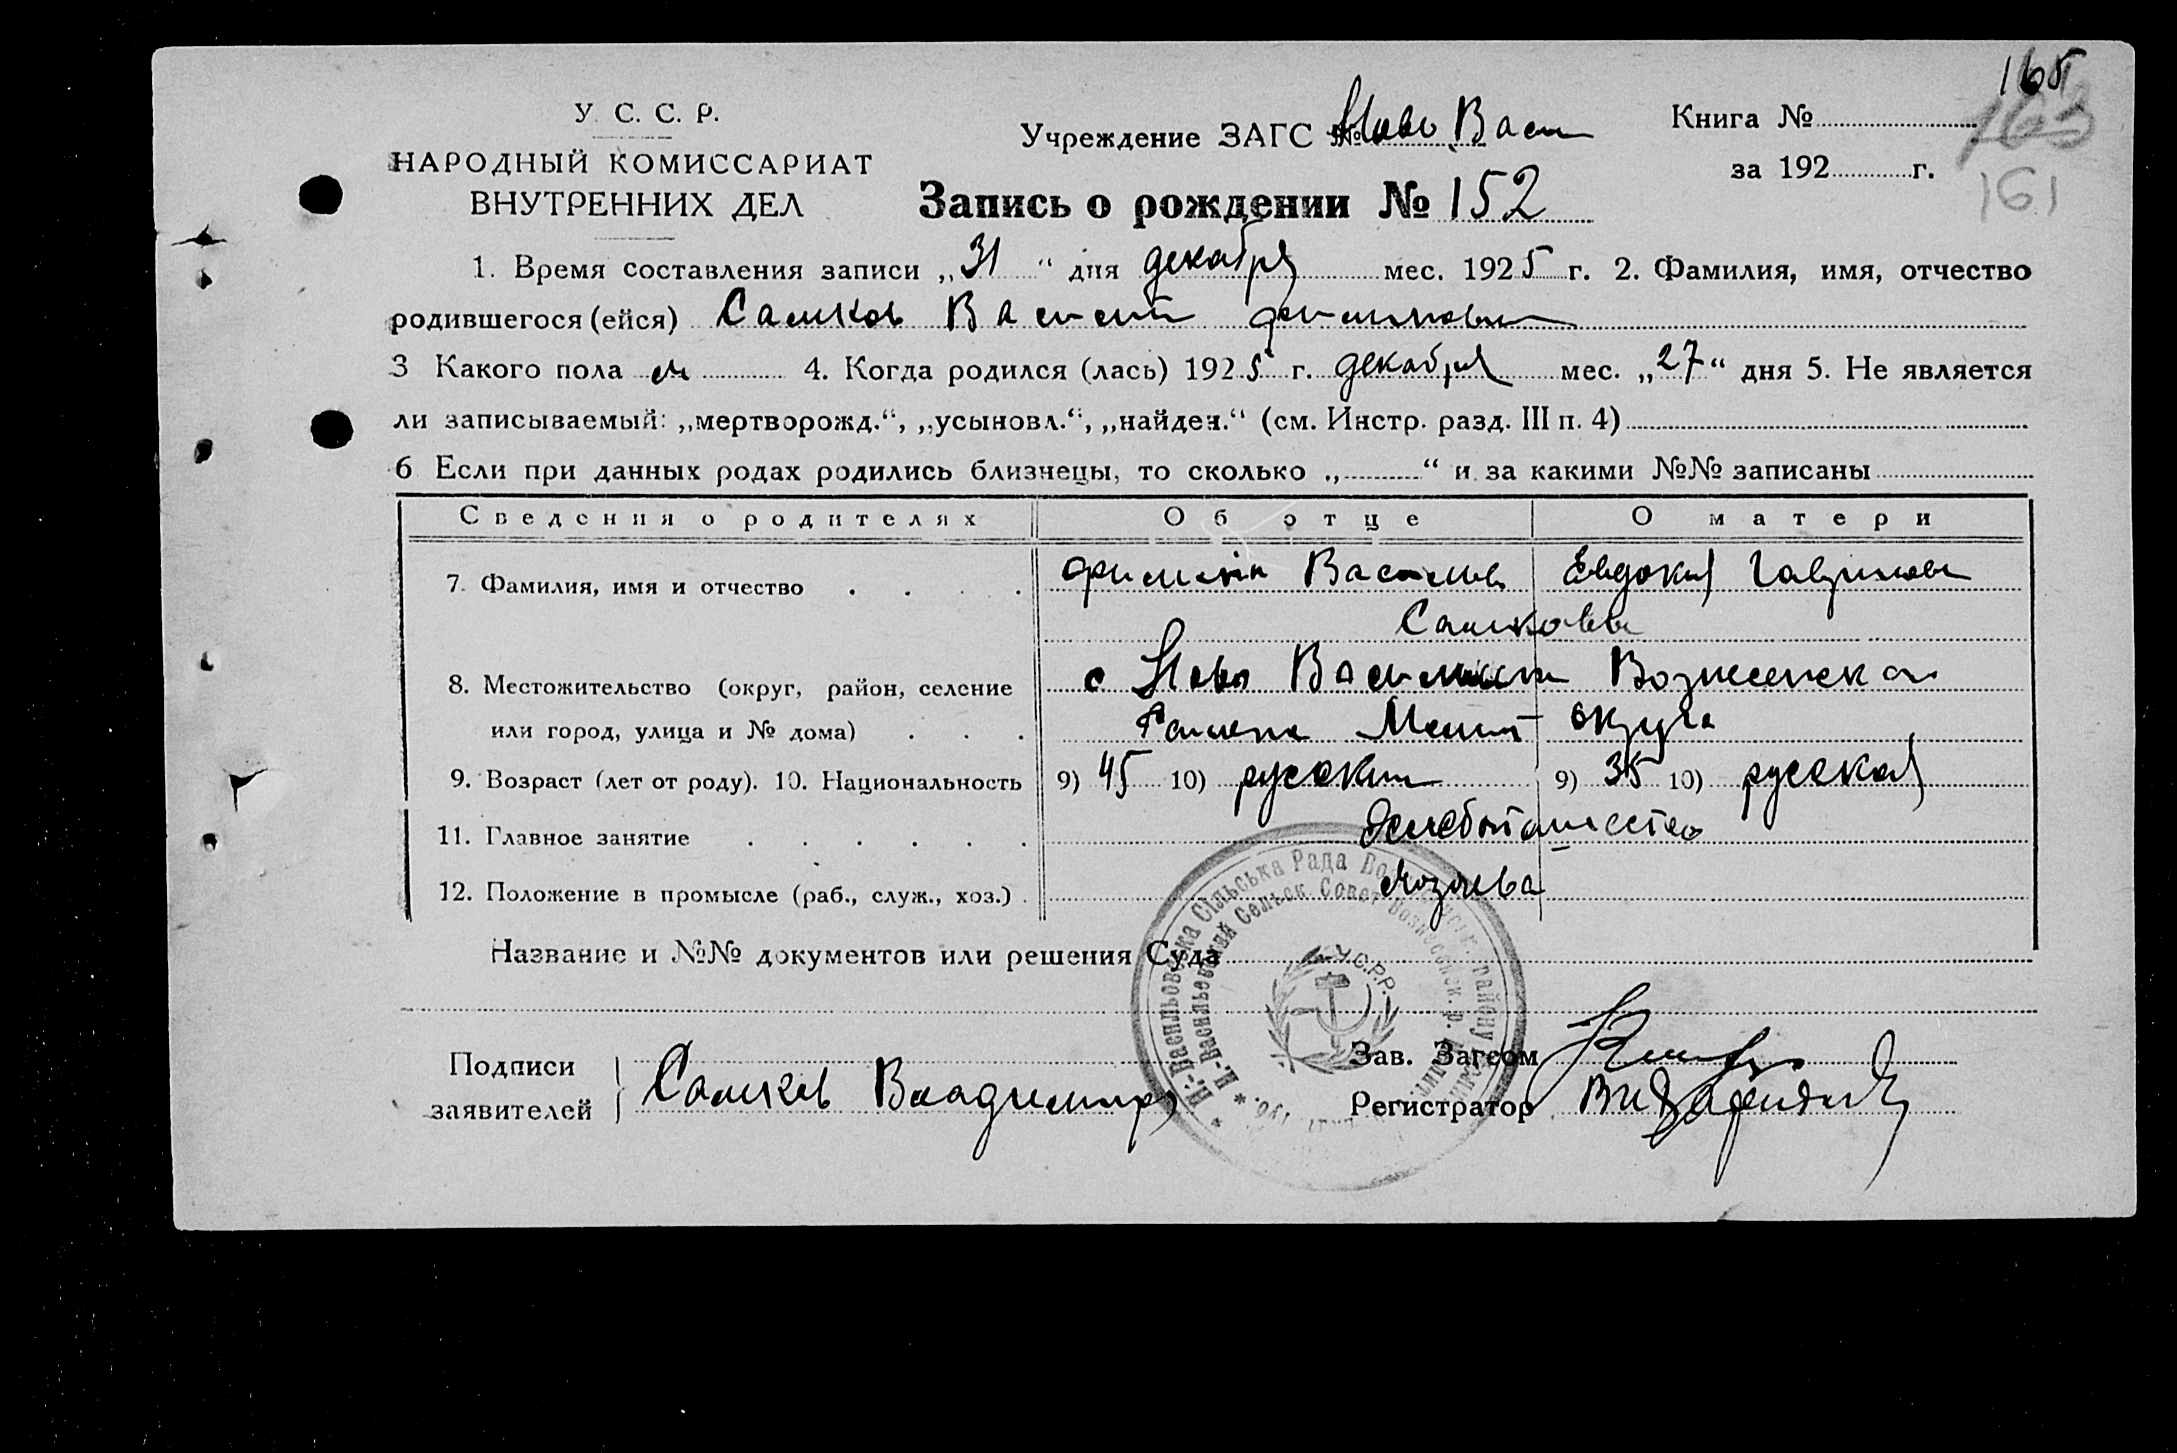 165
У. С. С. Р.
НАРОДНЫЙ КОМИССАРИАТ
ВНУТРЕННИХ ДЕЛ
Учреждение ЗАГС № Ново Васи
Книга №
163
за 192 г.
161
Запись о рождении № 152
1. Время составления записи „31“ дня декабря мес. 1925 г. 2. Фамилия, имя, отчество
родившегося (ейся) Самков
3 Какого пола м 4. Когда родился (лась) 1925 г. декабря мес. „27“ дня 5. Не является
ли записываемый: „мертворожд.“, „усыновл.“, „найден.“ (см. Инстр. разд. III п. 4)
6 Если при данных родах родились близнецы, то сколько „ “ и за какими №№ записаны
Сведения о родителях Об отце О матери
7. Фамилия, имя и отчество
Евдокия
8. Местожительство (округ, район, селение
с Ново
или город, улица и № дома)
Мелит округа
9. Возраст (лет от роду). 10. Национальность 9) 45 10) русский 9) 35 10) русская
11. Главное занятие
12. Положение в промысле (раб., служ., хоз.)
Название и №№ документов или решения Суда
Н.-Васильевский Сельск. Совет
У.С.Р.Р.
Подписи
заявителей
Самков Владимир
Зав. Загсом
Регистратор